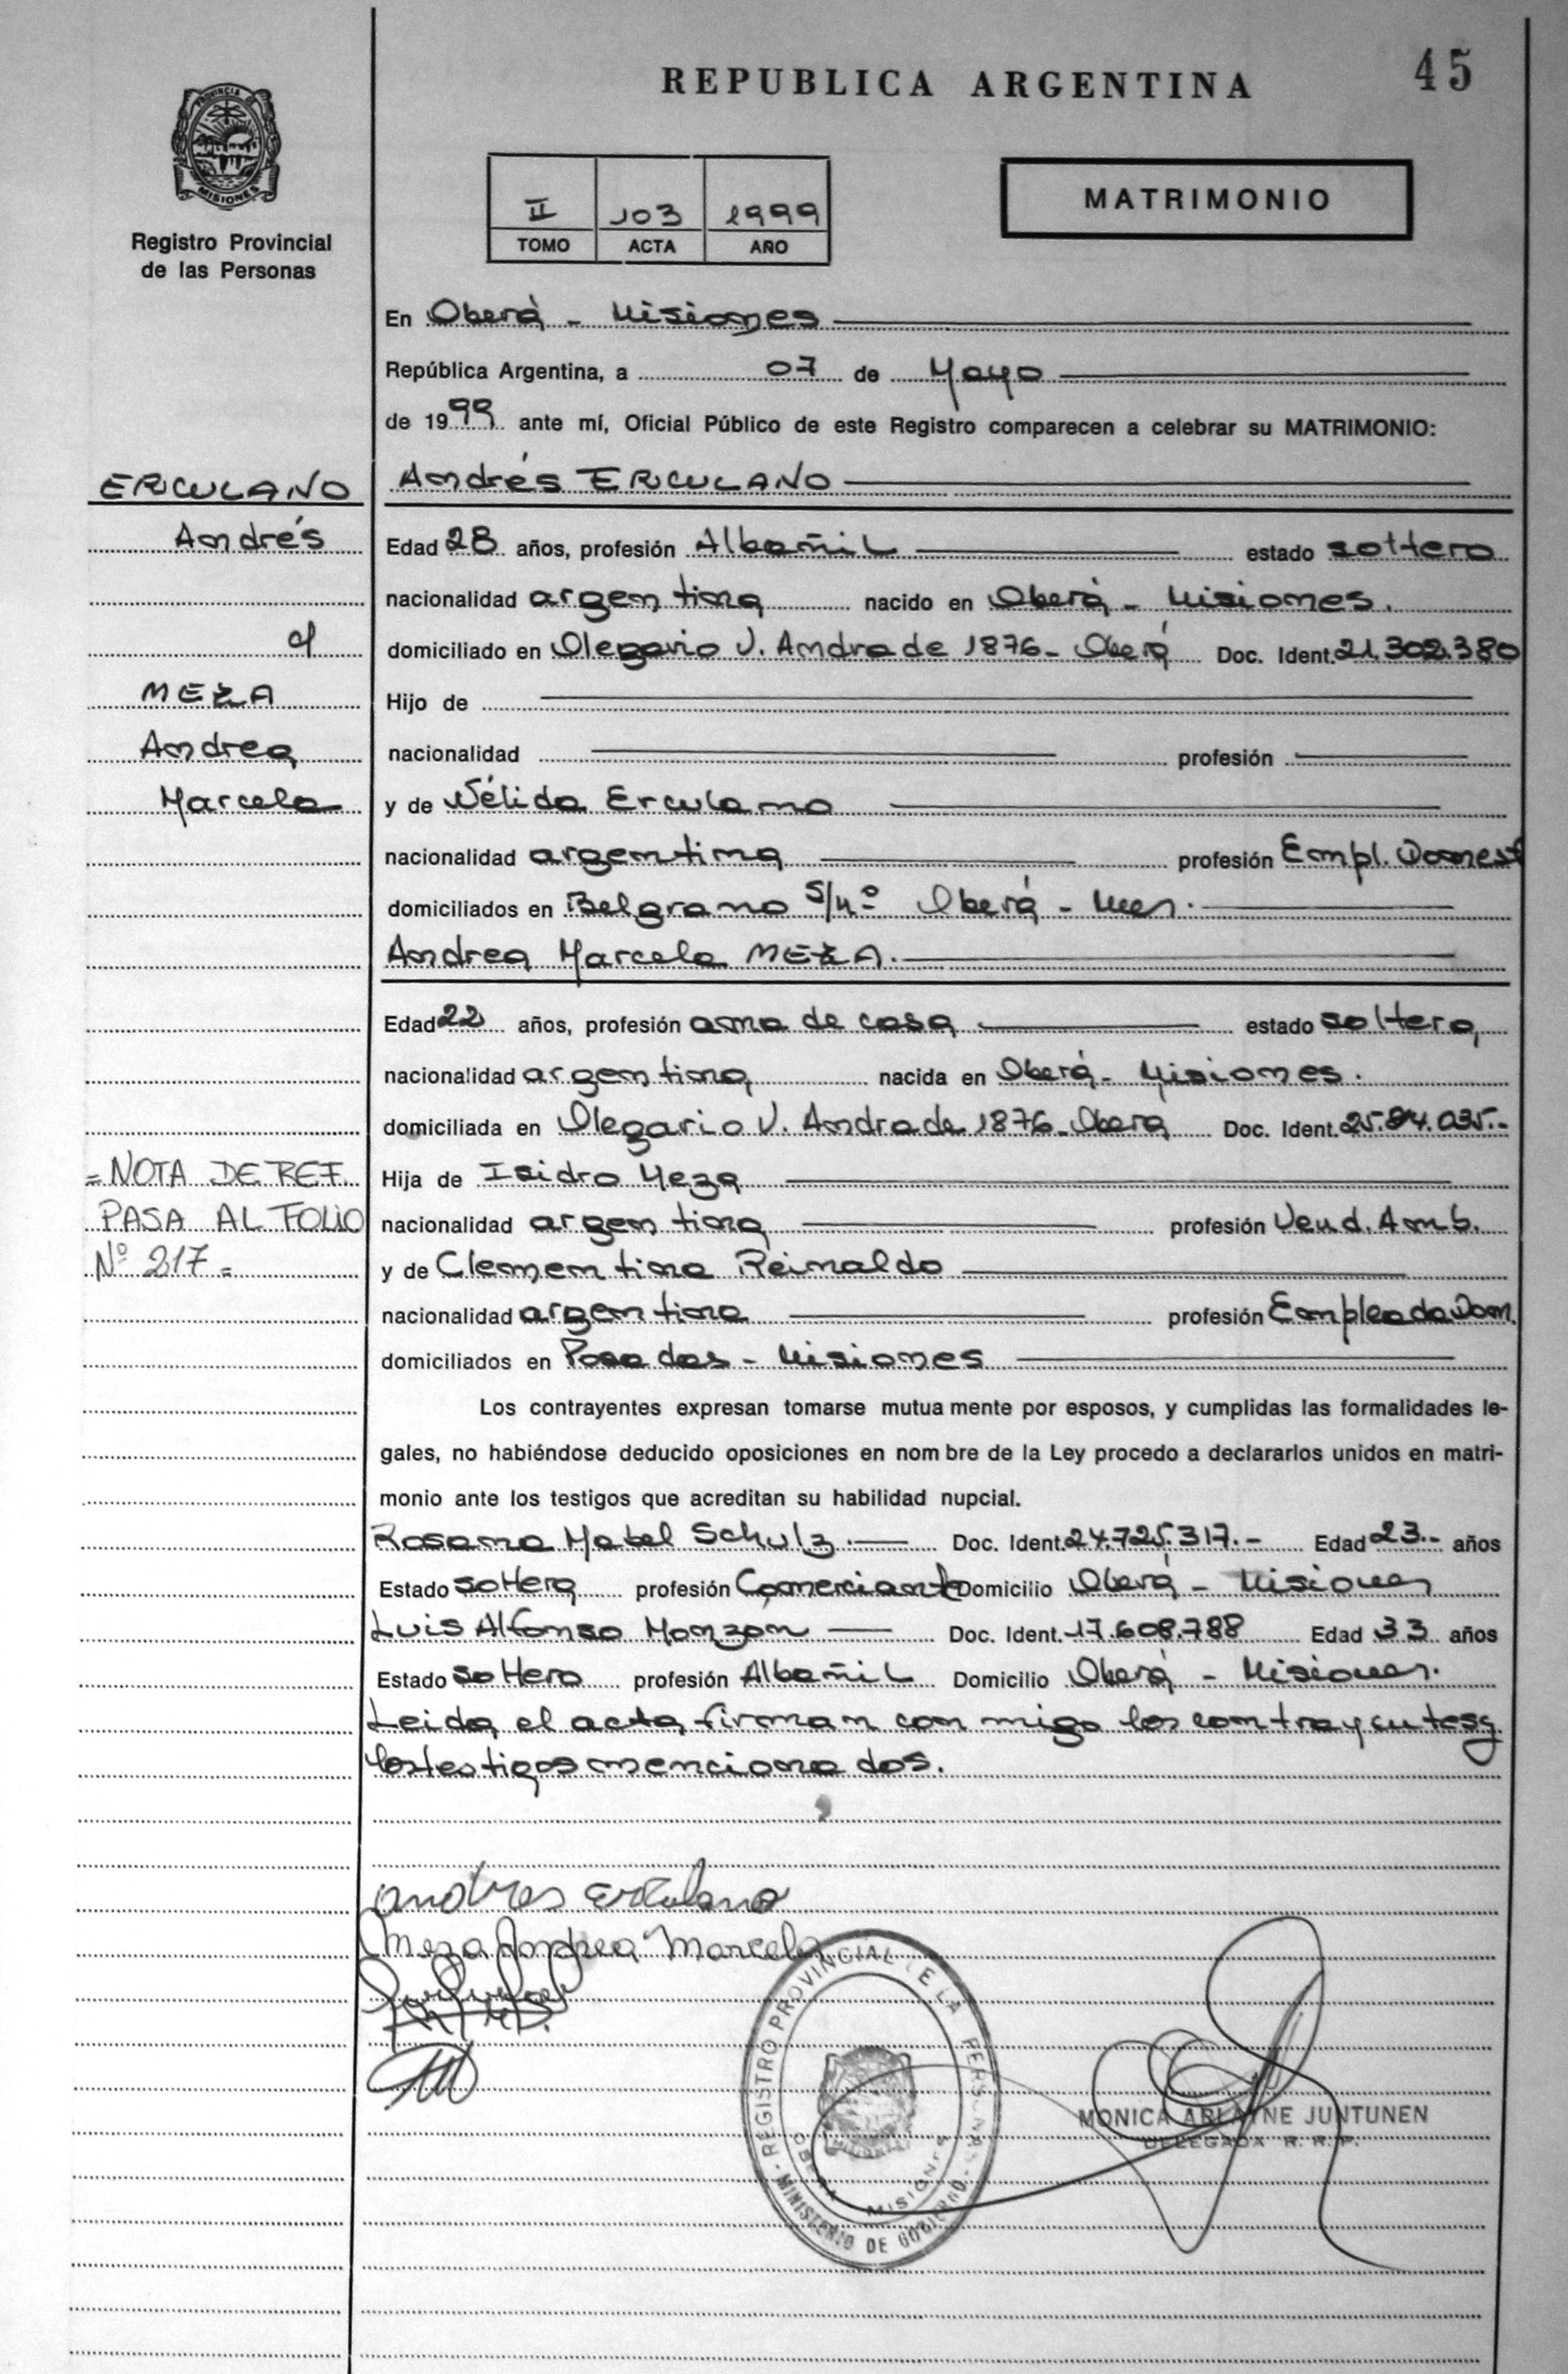 45
REPUBLICA ARGENTINA
PROVINCIA DE
MISIONES
Registro Provincial
de las Personas
II 103 1999
TOMO ACTA AÑO
MATRIMONIO
En Oberá - Misiones
República Argentina, a 07 de Mayo
de 1999 ante mí, Oficial Público de este Registro comparecen a celebrar su MATRIMONIO:
ERCULANO
Andrés
y
MEZA
Andrea
Marcela
Andrés ERCULANO
Edad 28 años, profesión Albañil estado soltero
nacionalidad argentina nacido en Oberá - Misiones.
domiciliado en Olegario V. Andrade 1876 - Oberá Doc. Ident. 21.302.380
Hijo de
nacionalidad profesión
y de Nélida Erculano
nacionalidad argentina profesión Empl. Domest
domiciliados en Belgrano S/Nº Oberá - Mnes.
Andrea Marcela MEZA.
Edad 22 años, profesión ama de casa estado soltera
nacionalidad argentina nacida en Oberá - Misiones.
domiciliada en Olegario V. Andrade 1876 - Oberá Doc. Ident.
= NOTA DE REF.
PASA AL FOLIO
Nº 217 =
Hija de Isidro Meza
nacionalidad argentina profesión Vend. Amb.
y de Clementina Reinaldo
nacionalidad argentina profesión Empleada Dom.
domiciliados en Posadas - Misiones
Los contrayentes expresan tomarse mutua mente por esposos, y cumplidas las formalidades le-
gales, no habiéndose deducido oposiciones en nom bre de la Ley procedo a declararlos unidos en matri-
monio ante los testigos que acreditan su habilidad nupcial.
Rosana Mabel Schulz.— Doc. Ident. 24.725.317.- Edad 23.- años
Estado soltera profesión Comerciante Domicilio Oberá - Misiones
Luis Alfonso Monzon — Doc. Ident. 17.608.788 Edad 33 años
Estado soltero profesión Albañil Domicilio Oberá - Misiones.
Leida el acta, firman con migo los contrayentes y
los testigos menciona dos.
andres erculano
Meza Andrea Marcela
REGISTRO PROVINCIAL DE LA PERSONAS
OBERA MISIONES
MINISTERIO DE GOBIERNO
MONICA ARLAYNE JUNTUNEN
DELEGADA R. R. P.